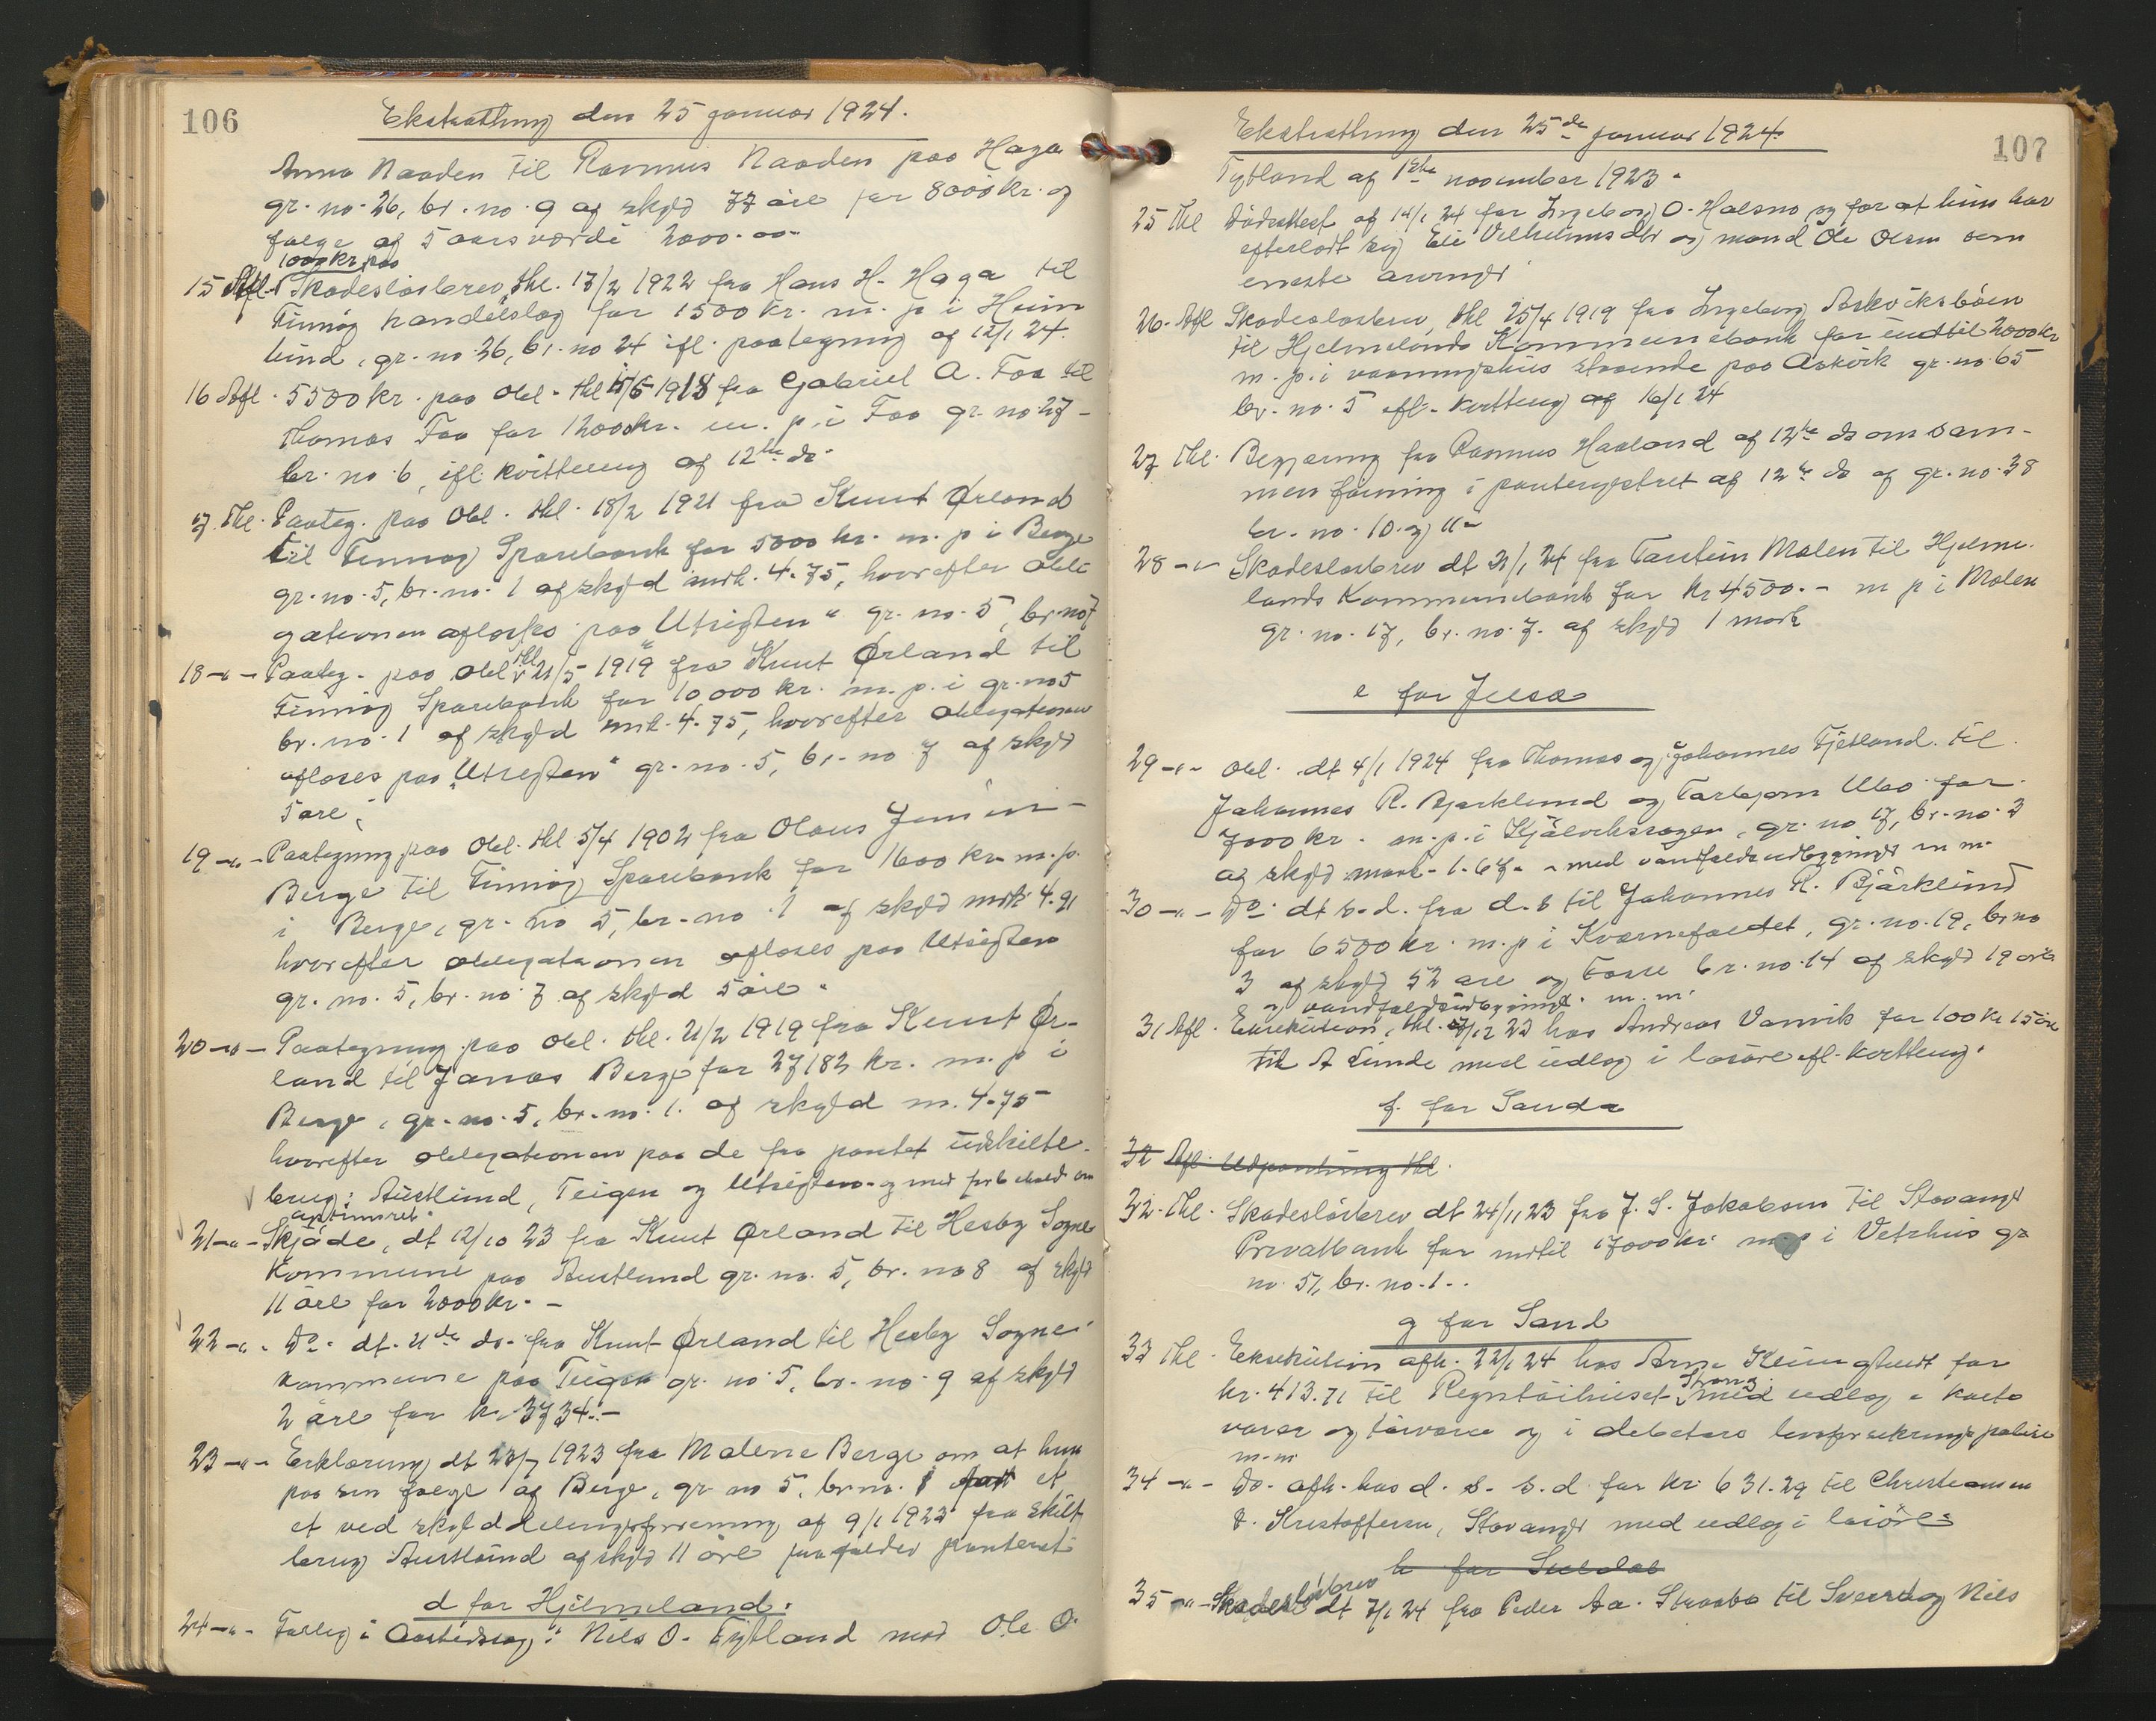 106
Ekstrathing den 25 januar 1924.
Anna Naaden til Rasmus Naaden paa Haga
gr. no. 26, br. no. 9 af skyld 77 øre for 8000 kr. og
følge af 5 aarsværdi 2000.00
1000 kr. paa
15 Afl. Skadesløsbrev, thl. 17/2 1922 fra Hans H. Haga til
Finnøy handelslag for 1500 kr. m. p. i Heim
lund, gr. no. 26, br. no 24 ifl. paategning af 12/1 24.
16 Afl. 5500 kr. paa Obl. thl 15/5 1918 fra Gabriel A. Faa til
Thomas Faa for 12000 kr. m. p. i Faa gr. no. 27
br. no. 6, ifl. kvittering af 12te ds.
17. Thl. Paateg. paa Obl. thl. 18/2 1921 fra Knut Ørland
til Finnøy Sparebank for 5000 kr. m. p i Berge
gr. no. 5, br. no. 1 af skyld mrk. 4.75, hvorefter obli
gationen afløses paa "Utsigten" gr. no. 5, br. no 7
18 -"- Paateg. paa Obl thl 21/5 1919 fra Knut Ørland til
Finnøy Sparebank for 10000 kr. m. p. i gr. no 5
br. no. 1 af skyld mrk. 4.75, hvorefter obligationen
afløses paa "Utsigten" gr. no. 5, br. no 7 af skyld
5 øre.
19 -"- Paategning paa Obl. thl 5/4 1902 fra Olaus
Berge til Finnøy Sparebank for 1600 kr. m. p.
i Berge, gr. no 5, br. no. 1 af skyld mrk 4.91
hvorefter obligationen afløses paa Utsigten
gr. no. 5, br. no. 7 af skyld 5 øre.
20 -"- Paategning paa Obl. thl. 21/2 1919 fra Knut Ør-
land til Jonas Berge for 27182 kr. m. p i
Berge, gr. no. 5, br. no. 1. af skyld m. 4.75
hvorefter obligationen paa de fra pantet udskilte
brug: Austlund, Teigen og Utsigten og med forbehold om
21 -"- Skjøde, dt 12/10 23 fra Knut Ørland til Hesby Sogne
Kommune paa Austlund gr. no. 5, br. no 8 af skyld
11 øre for 2000 kr. -
22 -"- Do. dt. 21de ds. fra Knut Ørland til Hesby Sogne-
kommune paa Teigen gr. no 5, br. no. 9 af skyld
2 øre for kr. 3734.-
23 -"- Erklæring dt 23/7 1923 fra Malene Berge om at hun
paa sin følge af Berge, gr. no 5, br. no. 1 et
et ved skylddelingsforretning af 9/1 1923 fra skilt
brug Austlund af skyld 11 øre frafalder panteret
d for Hjelmeland.
24 -"- Forlig i Aastedssag: Nils O. Tytland mod Ole O.
107
Ekstrathing den 25de januar 1924.
Tytland af 1ste november 1923.
25 Thl Dødsattest af 14/1 24 for Ingeborg O. Halsne og for at hun har
efterladt sig Eli Vilhelmsdtr og mand Ole Olsen som
eneste arvinger
26. Afl Skadesløsbrev, thl 25/4 1919 fra Ingeborg Askviksbøen
til Hjelmelands Kommunebank for indtil 2000 kr
m. p. i vaaningshus staaende paa Askvik gr. no. 65
br. no. 5 ifl. kvittering af 16/1 24
27 Thl. Begjæring fra Rasmus Haaland af 12te ds om sam-
menføining i panteregistret af 12te ds af gr. no. 38
br. no. 10. og 11
28 -"- Skadesløsbrev dt 21/1 24 fra Torstein Molen til Hjelme-
lands Kommunebank for kr 4500.- m p i Molen
gr. no. 17, br. no. 7. af skyld 1 mark
e for Jelsa
29 -"- Obl. dt 4/1 1924 fra Thomas og Johannes Fjetland til
Johannes R. Bjørklund og Torbjørn Ubø for
7000 kr. m. p. i gr. no 17, br. no. 3
og skyld mark 1.67. - med vandfaldsudbygninger m m.
30 -"- Do. dt s. d. fra d. s til Johannes R. Bjørklund
for 6500 kr. m. p i Kværnefaldet, gr. no. 19, br no
3 af skyld 52 øre og Fosse br. no. 14 af skyld 19 øre
og vandfaldsudbygninger. m. m.
31 Afl. Eksekution, thl. 27/12 23 hos Andreas Vanvik for 100 kr 15 øre
til A Lunde med udlæg i løsøre ifl. kvittering.
f. for Sauda
32 Afl. Udpantning thl.
32. Thl. Skadesløsbrev dt 24/11 23 fra J. S. Jakobsen til Stavanger
Privatbank for indtil 17000 kr m. p i Vetrhus gr
no. 51, br. no. 1..
g for Sand
33 Thl. Eksekution afh. 22/1 24 hos Arne Klungtveit for
kr. 413.71 til med udlæg i korte
varer og tøivarer og i debitors livsforsikringspolise
m. m.
34 -"- Do. afh. hos d. s. s. d for kr. 631.29 til Christiansen
& Kristoffersen, Stavanger med udlæg i løsøre
h for Suldal
35 -"- Skadesløsbrev dt 7/1 24 fra Peder Aa. Straabø til Sverre og Nils